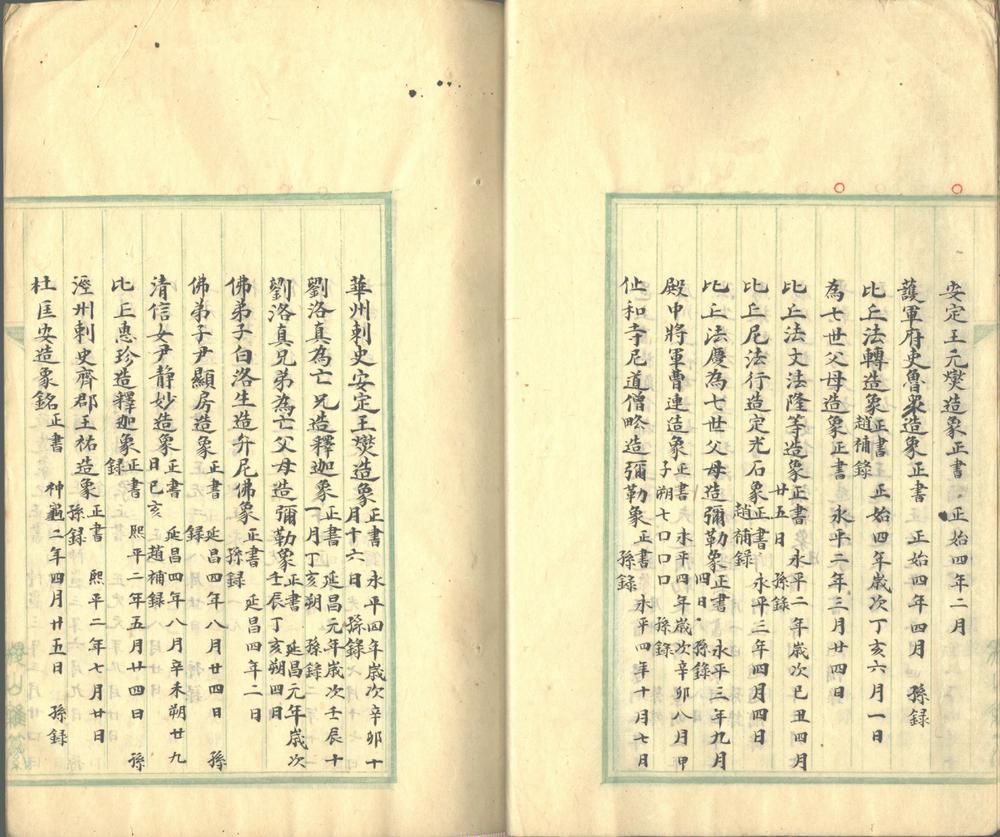 安定王元燮造象正書 正始四年二月
護軍府史魯眾造象正書 正始四年四月 孫録
比丘法轉造象正書 正始四年歲次丁亥六月一日
趙補録
為七世父母造象正書 永平二年三月廿四日
比丘法文法隆等造象正書 永平二年歲次已丑四月
廿五日 孫録
比丘尼法行造定光石象正書 永平三年四月四日
趙補録
比丘法慶為七世父母造彌勒象正書 永平三年九月
四日 孫録
殿中將軍曹連造象正書 永平四年歲次辛卯八月甲
子朔七口口口 孫録
仙和寺尼道僧略造彌勒象正書 永平四年十月七日
孫録
華州刺史安定王燮造象正書 永平四年歲次辛卯十
月十六日 孫録
劉洛真為亡兄造釋迦象正書 延昌元年歲次壬辰十
一月丁亥朔 孫録
劉洛真兄弟為亡父母造彌勒象正書 延昌元年歲次
壬辰丁亥朔四日
佛弟子白洛生造弁尼佛象正書 延昌四年二日
孫録
佛弟子尹顯房造象正書 延昌四年八月廿四日 孫
録
清信女尹静妙造象正書 延昌四年八月辛未朔廿九
日已亥 趙補録
比丘惠珍造釋迦象正書 熙平二年五月廿四日 孫
録
涇州刺史齊郡王祐造象正書 熙平二年七月廿日
孫録
杜匡安造象銘正書 神龜二年四月廿五日 孫録